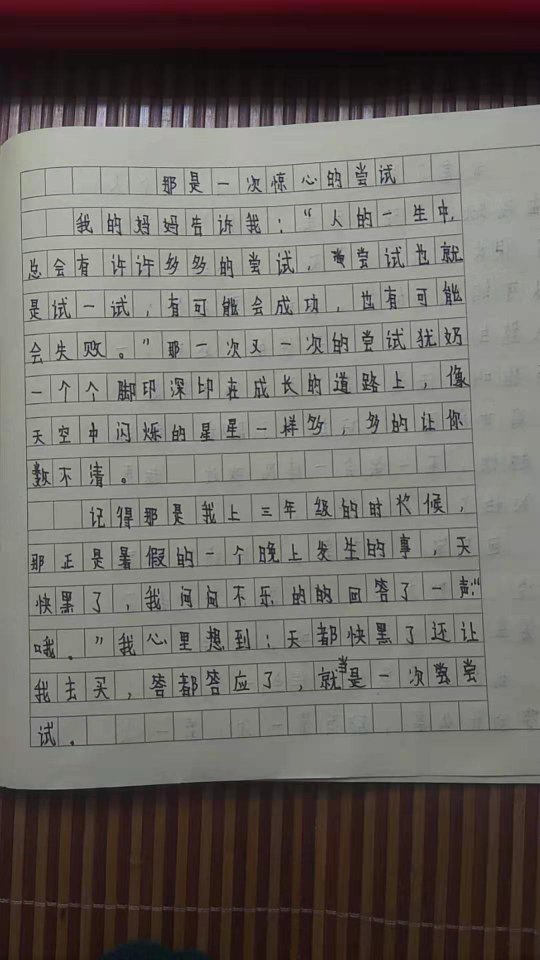 那是一次惊心的尝试
我的妈妈告诉我：“人的一生中，
总会有许许多多的尝试，尝试也就
是试一试，有可能会成功，也有可能
会失败。”那一次又一次的尝试犹奶
一个个脚印深印在成长的道路上，像
天空中闪烁的星星一样多，多的让你
数不清。
记得那是我上三年级的时候，
那正是暑假的一个晚上发生的事，天
快黑了，我闷闷不乐的的回答了一声：“
哦。”我心里想到：天都快黑了还让
我去买，答都答应了，就当是一次尝尝
试。